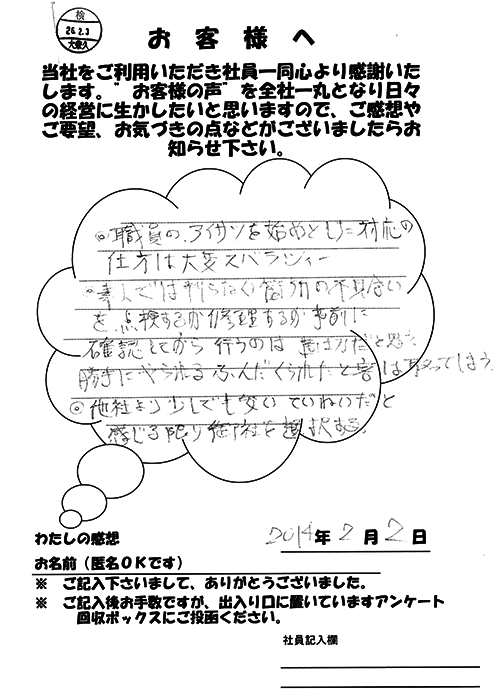 検
26.2.3
お客様へ
当社をご利用いただき社員一同心より感謝いた
します。”お客様の声”を全社一丸となり日々
の経営に生かしたいと思いますので、ご感想や
ご要望、お気づきの点などがございましたらお
知らせ下さい。
◎職員の、アイサツを始めとした対応の
仕方は大変スバラシィー
◎素人では判らなく 箇所の不具合
を点検するか修理するか事前に
確認とてから行うのは だと思う
勝手にやられるふんだくられたと客は取ってしまう
◎他社より少しでも安いていねいだと
感じる限り御社を選択する。
わたしの感想
2014年2月2日
お名前（匿名OKです）
※ ご記入下さいまして、ありがとうございました。
※ ご記入後お手数ですが、出入り口に置いていますアンケート
回収ボックスにご投函ください。
社員記入欄